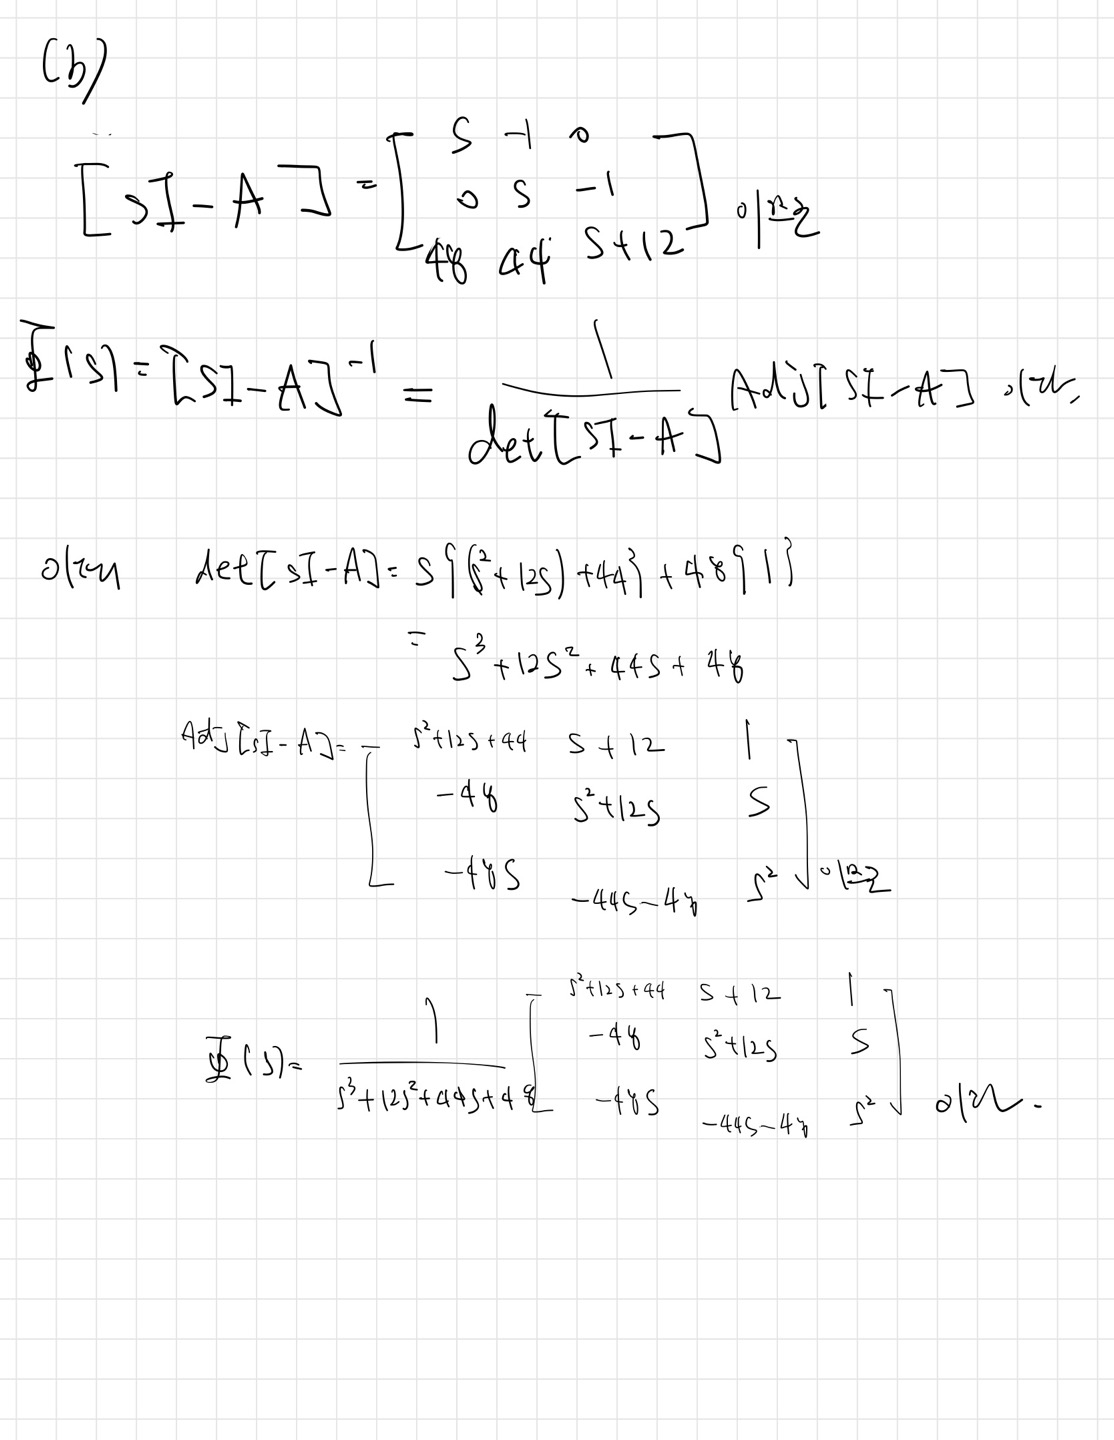 (b)
[sI-A] = [ S -1 0
0 S -1
48 44 S+12 ] 이므로
Φ(s) = [SI-A]⁻¹ = 1 / det[SI-A] Adj[SI-A] 이다.
이때 det[sI-A] = S{(s²+12s)+44}+48{1}
= S³+12S²+44S+48
Adj[sI-A] = [ s²+12s+44 s+12 1
-48 s²+12s S
-48S -44s-48 s² ] 이므로
Φ(s) = 1 / s³+12s²+44s+48 [ s²+12s+44 s+12 1
-48 s²+12s S
-48S -44s-48 s² ] 이다.